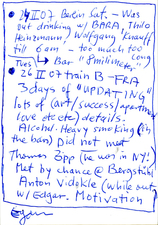 24 II 07 Berlin Sat. – Was
out drinking w/ BARA, Thilo
Heinzmann / Wolfgang Knauff
till 6 am – too much too long
Tues → Bar "Smilimeter"
26 II 07 train B – FRA
3 days of "UPDATING"
lots of (art/success/apartment
love etc etc) details.
Alcohol. Heavy smoking (in
the bar) Did not meet
Thomas Zipp (he was in NY!)
Met by chance @ Bergstübl
Anton Vidokle (while out
w/ Edgar. Motivation